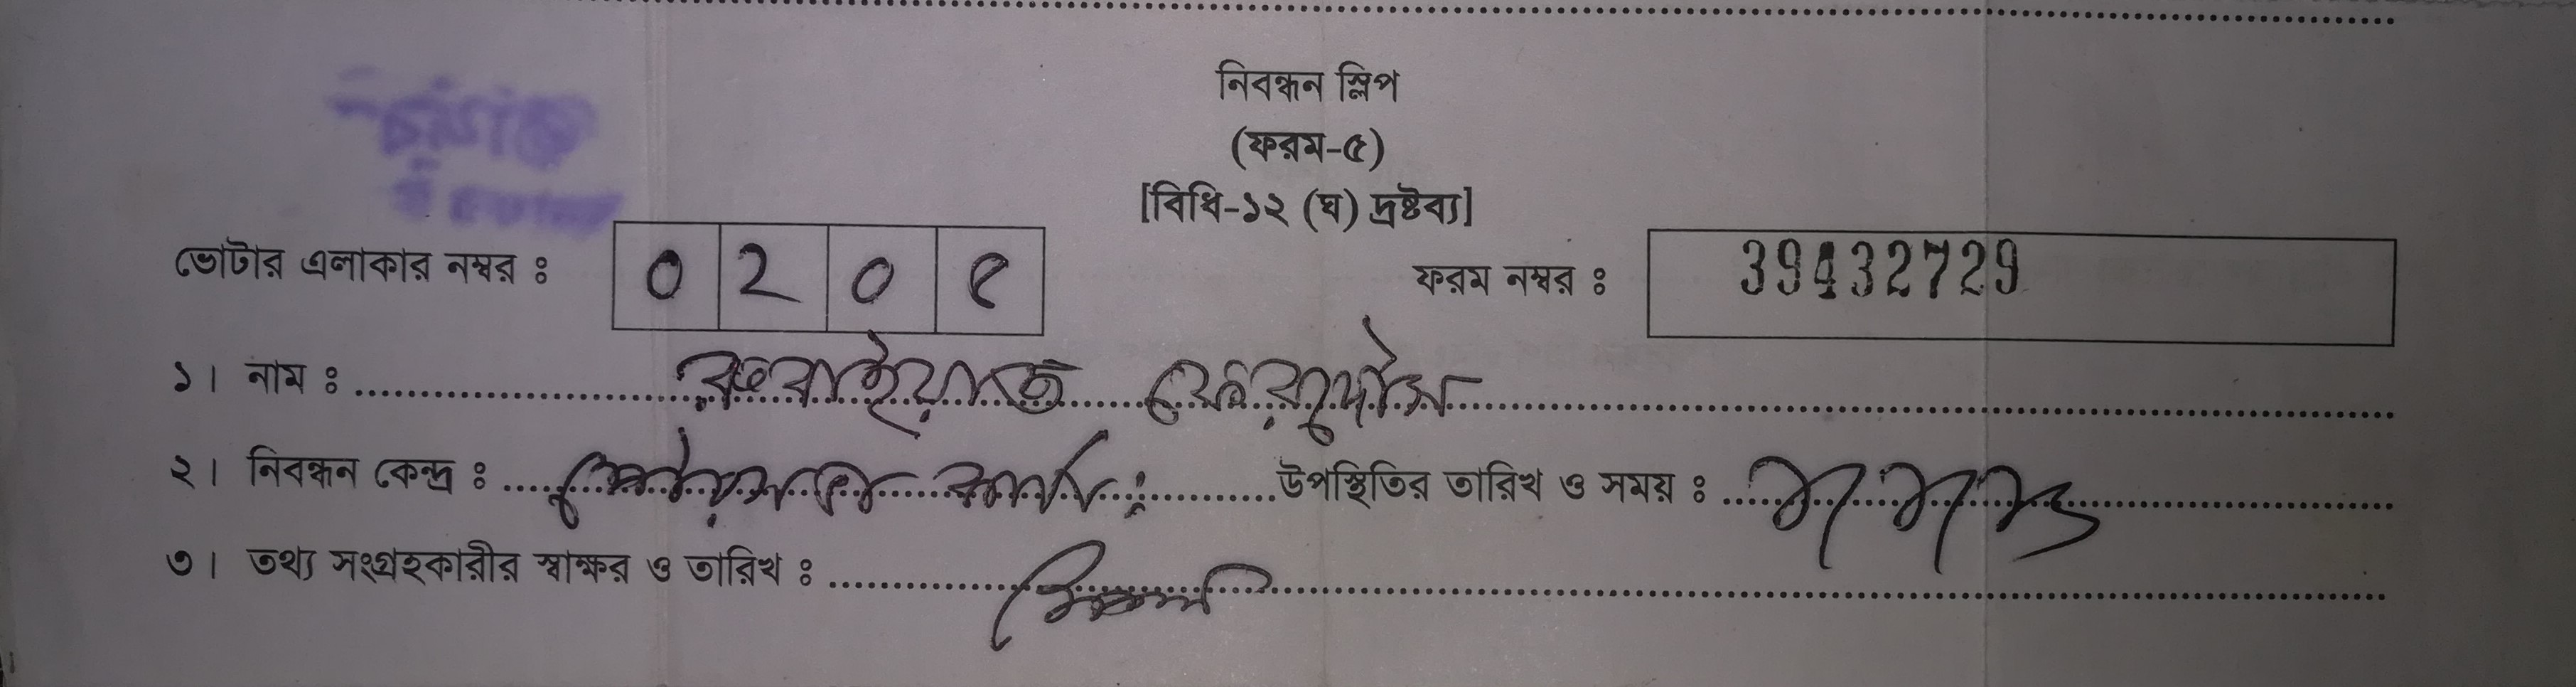 নিবন্ধন স্লিপ
(ফরম-৫)
[বিধি-১২ (ঘ) দ্রষ্টব্য]
ভোটার এলাকার নম্বর ঃ 0 2 0 ৫ ফরম নম্বর ঃ 39432729
১। নাম ঃ রুবাইয়াত ফেরদৌস
২। নিবন্ধন কেন্দ্র ঃ উপস্থিতির তারিখ ও সময় ঃ
৩। তথ্য সংগ্রহকারীর স্বাক্ষর ও তারিখ ঃ